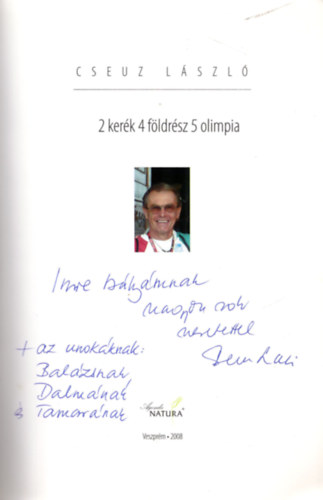 CSEUZ LÁSZLÓ
2 kerék 4 földrész 5 olimpia
Imre bátyámnak
nagyon sok
szeretettel
Cseuz Laci
+ az unokáknak:
Balázsnak
Dalmának
s Tamarának
NATURA
Veszprém • 2008